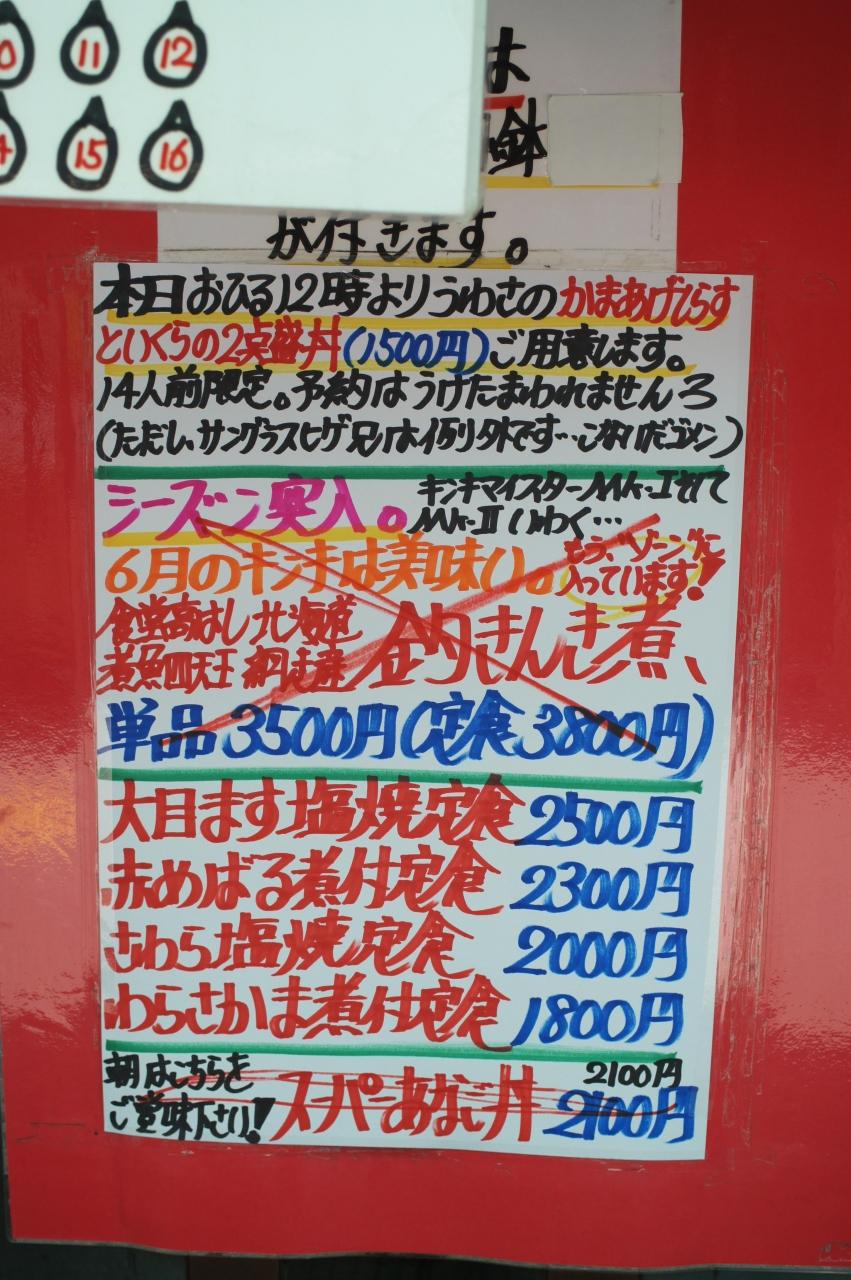 11 12
15 16
は
鉢
が付きます。
本日おひる12時よりうわさのかまあげしらす
といくらの2点盛丼(1500円)ご用意します。
14人前限定。予約はうけたまわれませんろ
(ただし、サングラスヒゲ兄は例外です…こないだゴメン)
シーズン突入。キンキマイスターMk-Iそして
Mk-IIいわく…
6月のキンキは美味い。もう、"ゾーン"に
入っています!
食堂高はし 北海道
煮魚四天王 網走産 釣りきんき煮、
単品3500円(定食3800円)
大目ます塩焼定食 2500円
赤めばる煮付定食 2300円
さわら塩焼定食 2000円
わらさかま煮付定食 1800円
朝はこちらを 2100円
ご賞味下さい! スーパーあなご丼 2100円